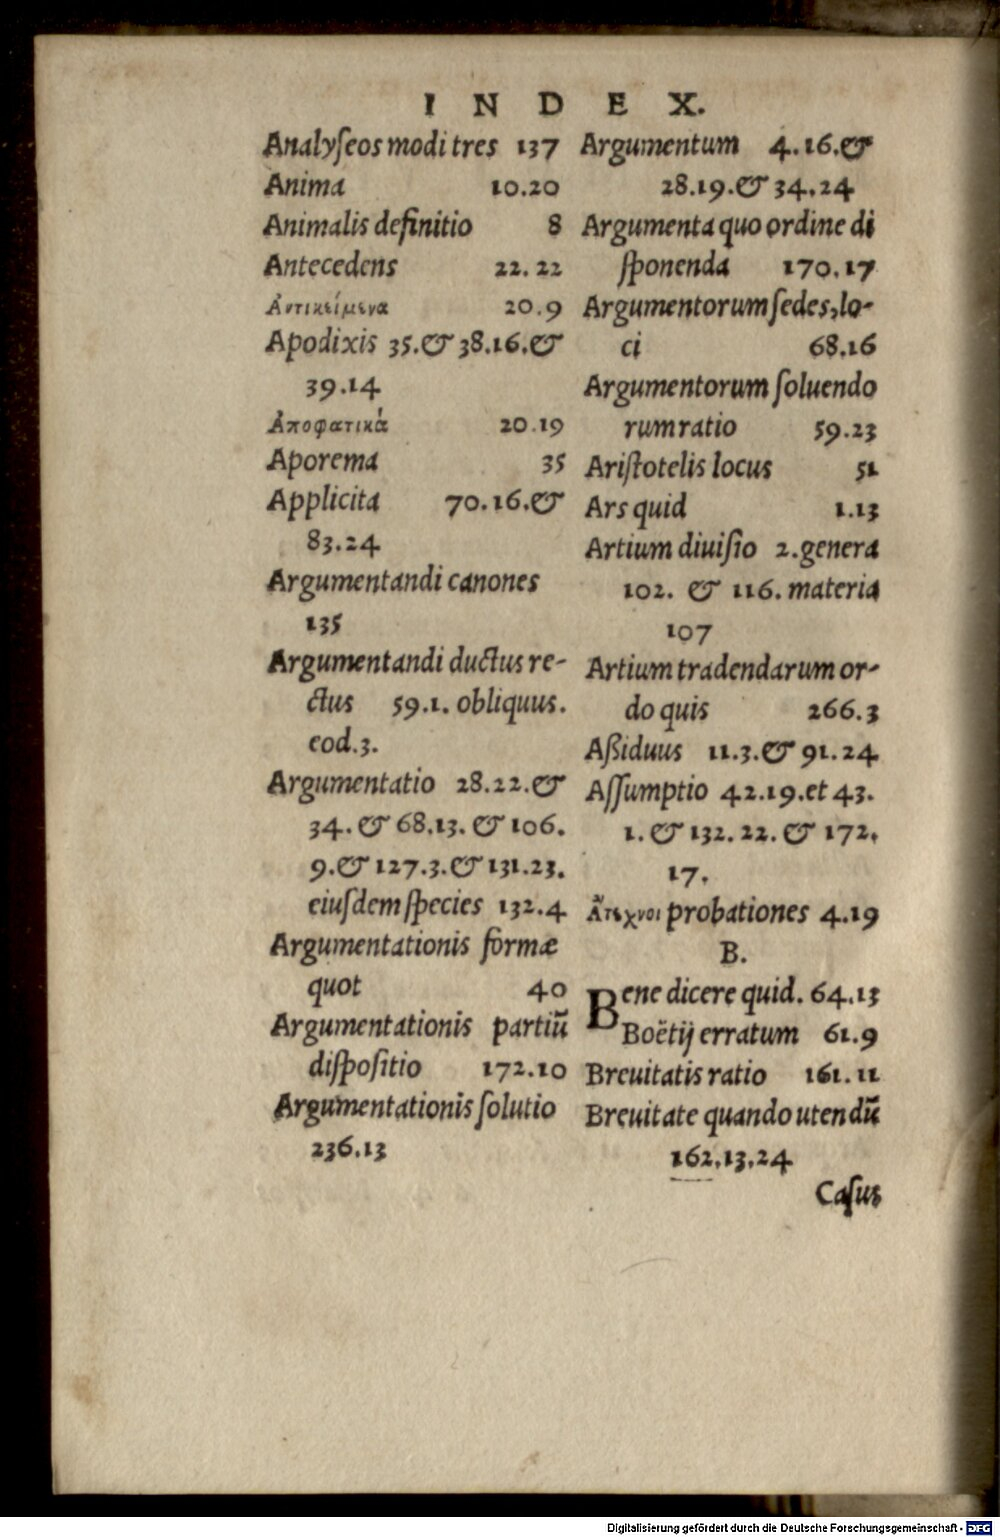 INDEX.
Analyſeos modi tres 137
Anima 10.20
Animalis definitio 8
Antecedens 22.22
Αντικείμενα 20.9
Apodixis 35.& 38.16.&
39.14
Αποφατικά 20.19
Aporema 35
Applicita 70.16.&
83.24
Argumentandi canones
135
Argumentandi ductus re-
ctus 59.1. obliquus.
eod.3.
Argumentatio 28.22.&
34.& 68.13.& 106.
9.& 127.3.& 131.23.
eiuſdem ſpecies 132.4
Argumentationis formæ
quot 40
Argumentationis partiū
diſpoſitio 172.10
Argumentationis ſolutio
236.13
Argumentum 4.16.&
28.19.& 34.24
Argumenta quo ordine di
ſponenda 170.17
Argumentorum ſedes, lo-
ci 68.16
Argumentorum ſoluendo
rum ratio 59.23
Ariſtotelis locus 51
Ars quid 1.13
Artium diuiſio 2. genera
102. & 116. materia
107
Artium tradendarum or-
do quis 266.3
Aßiduus 11.3.& 91.24
Aſſumptio 42.19. et 43.
1.& 132.22.& 172.
17.
Ἄτεχνοι probationes 4.19
B.
Bene dicere quid. 64.13
Boëtij erratum 61.9
Breuitatis ratio 161.11
Breuitate quando utendū
162.13.24
Caſus
Digitalisierung gefördert durch die Deutsche Forschungsgemeinschaft - DFG